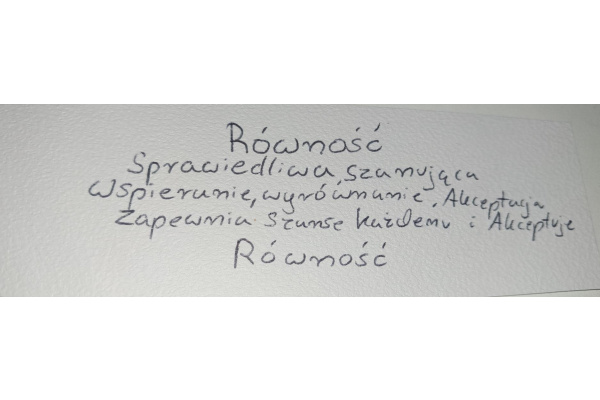 Równość
Sprawiedliwa, szanująca
Wspieranie, wyrównanie, Akceptacja
Zapewnia szanse każdemu i Akceptuje
Równość